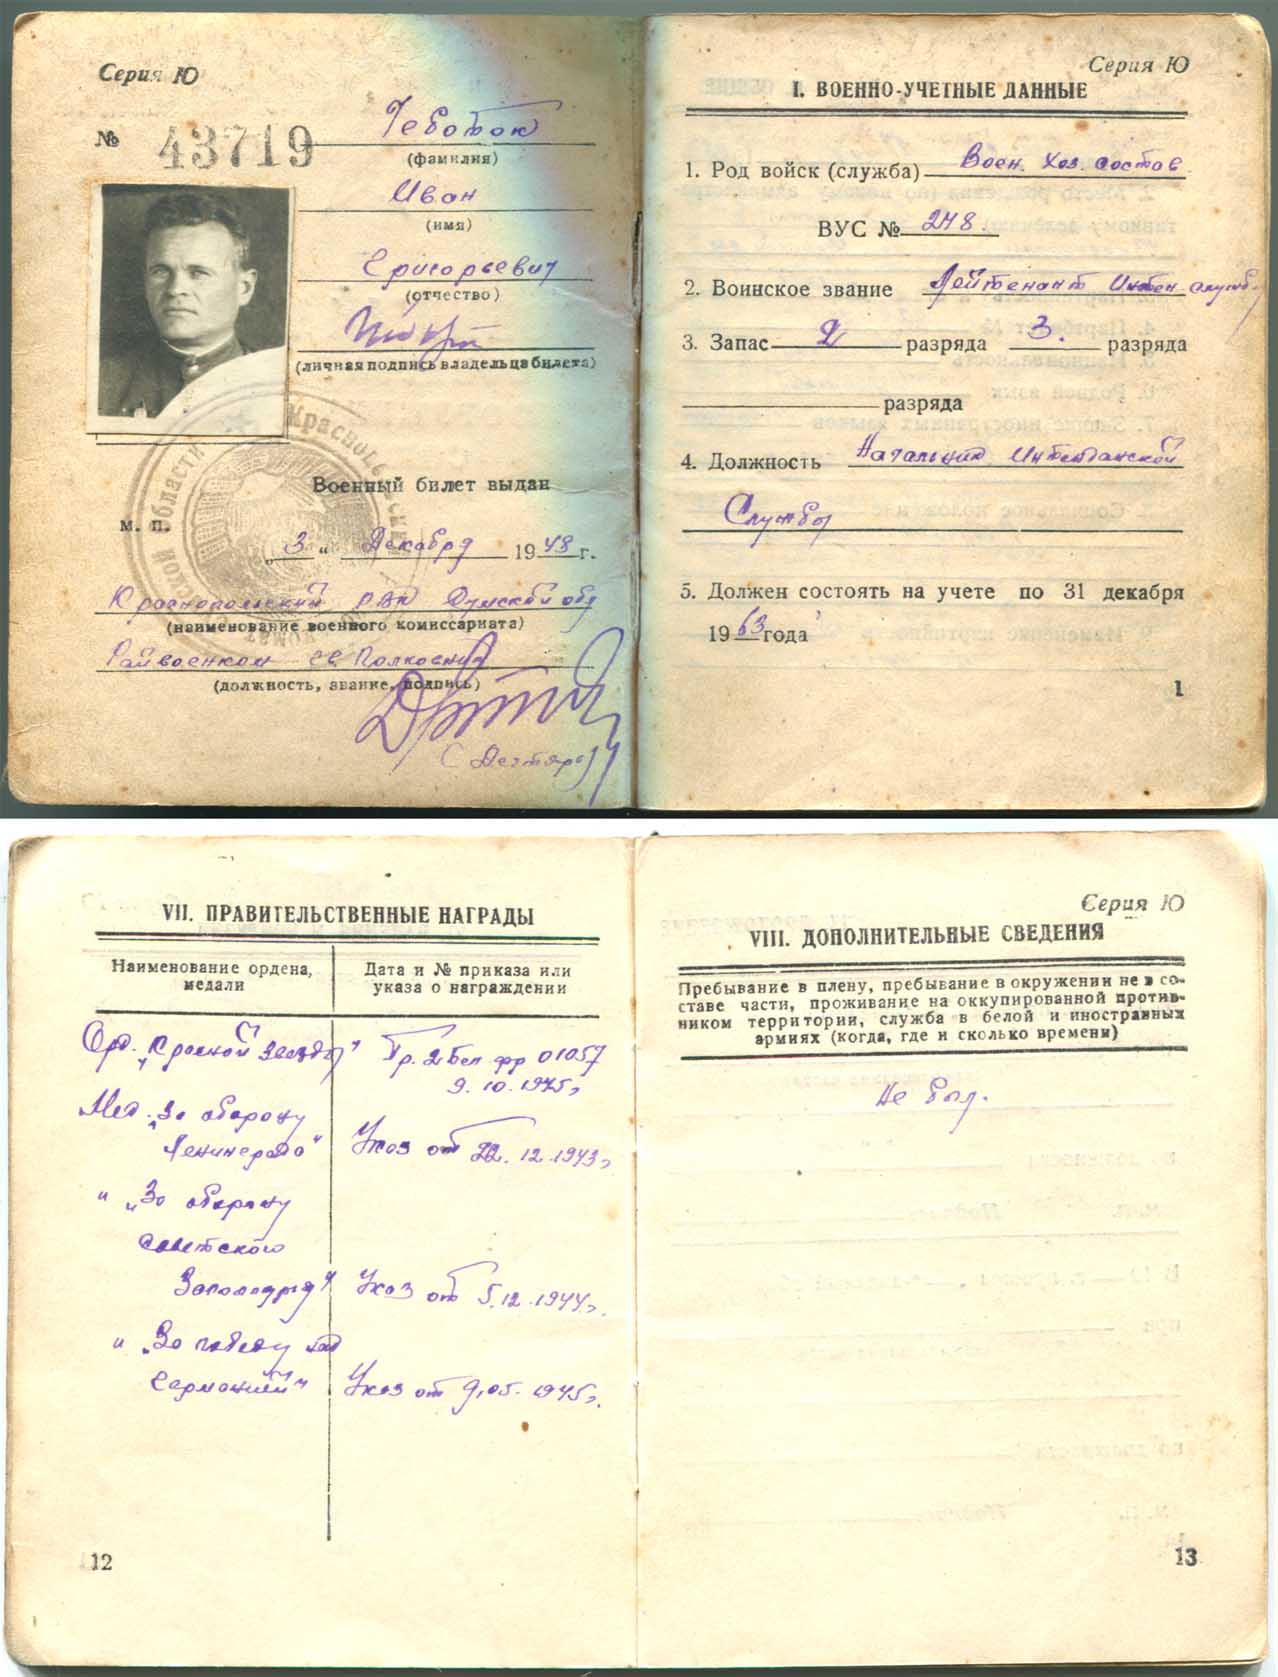 Серия Ю
№ 43719
Чеботок
(фамилия)
Иван
(имя)
Григорьевич
(отчество)
(личная подпись владельца билета)
Военный билет выдан
М. П.
„3“ Декабря 1948 г.
Краснопольский РВК Сумской обл
(наименование военного комиссариата)
Райвоенком Полковник
(должность, звание, подпись)
Серия Ю
I. ВОЕННО-УЧЕТНЫЕ ДАННЫЕ
1. Род войск (служба) Воен. хоз. состав
ВУС № 248.
2. Воинское звание Лейтенант Интен. службы
3. Запас 2 разряда 3. разряда
разряда
4. Должность Начальник Интендантской
Службы
5. Должен состоять на учете по 31 декабря
1963 года
1
VII. ПРАВИТЕЛЬСТВЕННЫЕ НАГРАДЫ
Наименование ордена, медали
Дата и № приказа или указа о награждении
Орд. „Красной Звезды“ Пр. 2 Бел фр 01057
9. 10. 1945г.
Мед. „За оборону
Ленинграда“ Указ от 22. 12. 1943г.
" „За оборону
Советского
Заполярья“ Указ от 5.12.1944г.
" „За победу над
Германией“ Указ от 9.05.1945г.
12
Серия Ю
VIII. ДОПОЛНИТЕЛЬНЫЕ СВЕДЕНИЯ
Пребывание в плену, пребывание в окружении не в со-
ставе части, проживание на оккупированной против-
ником территории, служба в белой и иностранных
армиях (когда, где и сколько времени)
Не был.
13